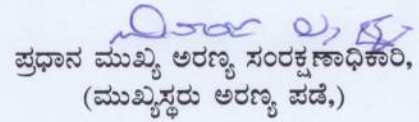 ಪ್ರಧಾನ ಮುಖ್ಯ ಅರಣ್ಯ ಸಂರಕ್ಷಣಾಧಿಕಾರಿ,
(ಮುಖ್ಯಸ್ಥರು ಅರಣ್ಯ ಪಡೆ,)